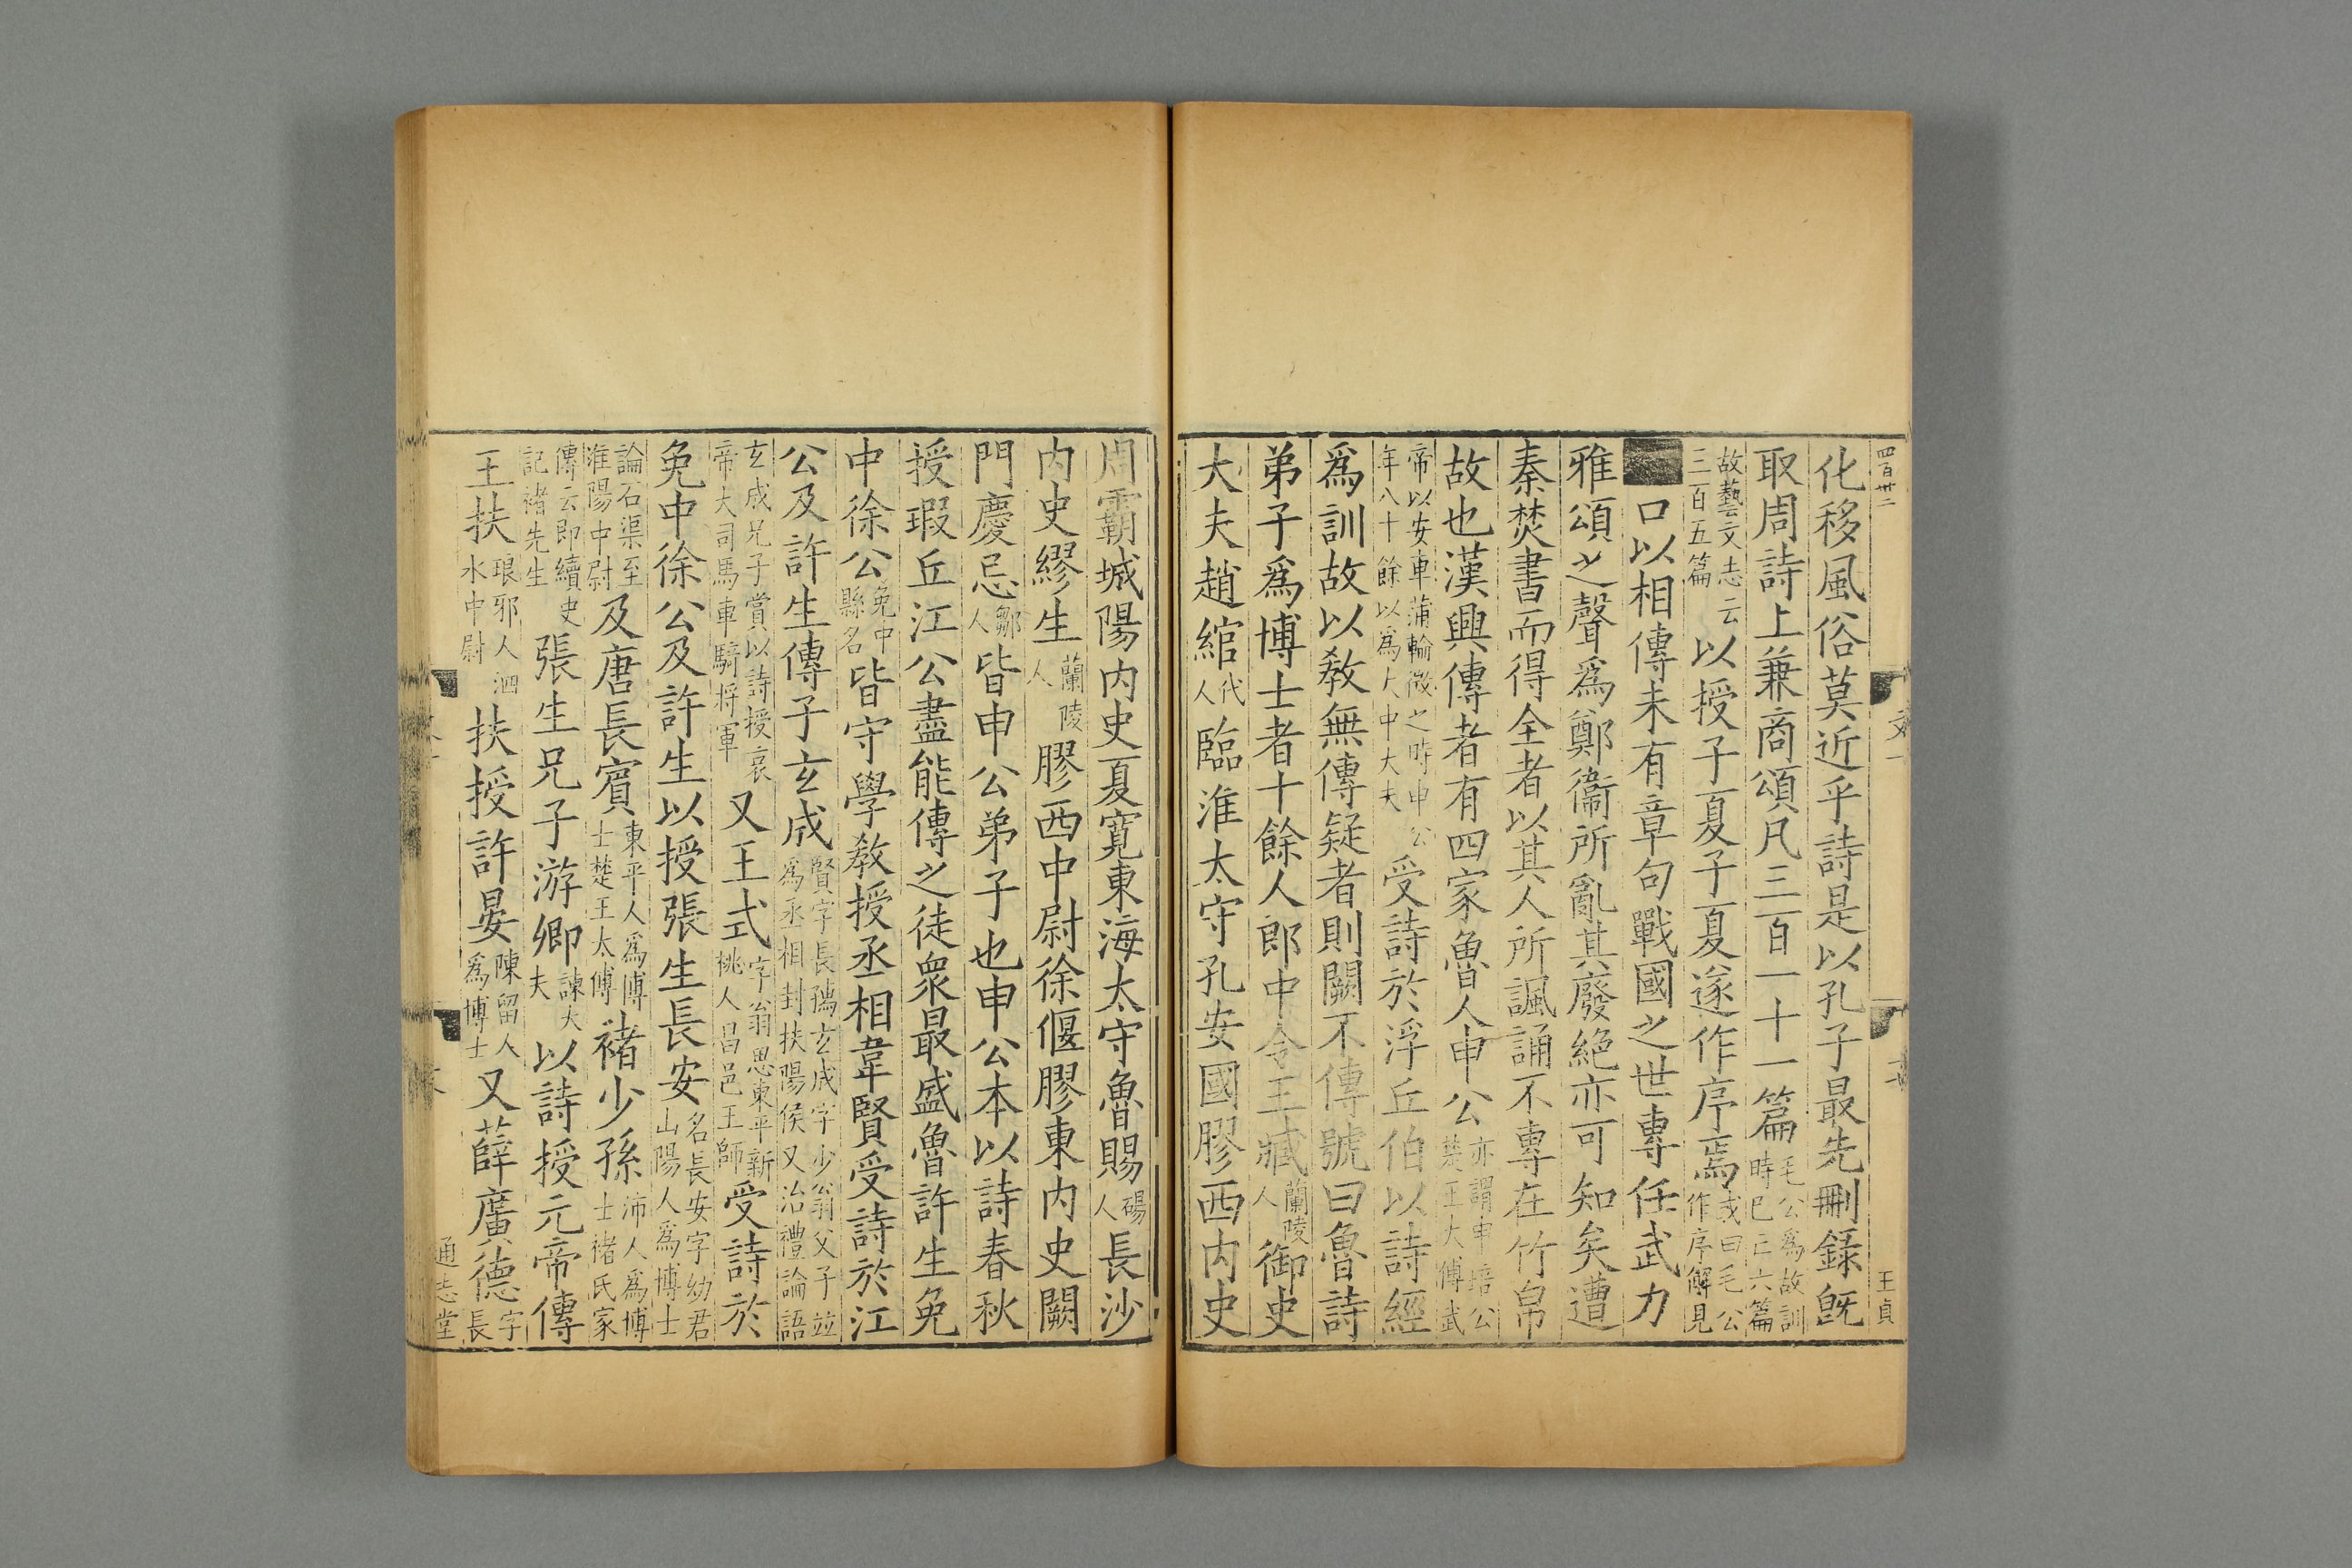 四百廿二
王貞
化移風俗莫近乎詩是以孔子最先刪錄旣
取周詩上兼商頌凡三百一十一篇毛公爲故訓時已亡六篇
故藝文志云三百五篇以授子夏子夏遂作序焉或曰毛公作序解見
口以相傳未有章句戰國之世專任武力
雅頌之聲爲鄭衞所亂其廢絕亦可知矣遭
秦焚書而得全者以其人所諷誦不專在竹帛
故也漢興傳者有四家魯人申公亦謂申培公楚王太傅武
帝以安車蒲輪徵之時申公年八十餘以爲大中大夫受詩於浮丘伯以詩經
爲訓故以敎無傳疑者則闕不傳號曰魯詩
弟子爲博士者十餘人郎中令王臧蘭陵人御史
大夫趙綰代人臨淮太守孔安國膠西内史
周霸城陽内史夏寬東海太守魯賜碭人長沙
内史繆生蘭陵人膠西中尉徐偃膠東内史闕
門慶忌鄒人皆申公弟子也申公本以詩春秋
授瑕丘江公盡能傳之徒衆最盛魯許生免
中徐公免中縣名皆守學敎授丞相韋賢受詩於江
公及許生傳子玄成賢字長孺玄成字少翁父子並爲丞相封扶陽侯又治禮論語
玄成兄子賞以詩授哀帝大司馬車騎将軍又王式字翁思東平新桃人昌邑王師受詩於
免中徐公及許生以授張生長安名長安字幼君山陽人爲博士
論石渠至淮陽中尉及唐長賓東平人爲博士楚王太傅褚少孫沛人爲博士褚氏家
傳云即續史記褚先生張生兄子游卿諫大夫以詩授元帝傳
王扶琅邪人泗水中尉扶授許晏陳留人爲博士又薛廣德字長
通志堂